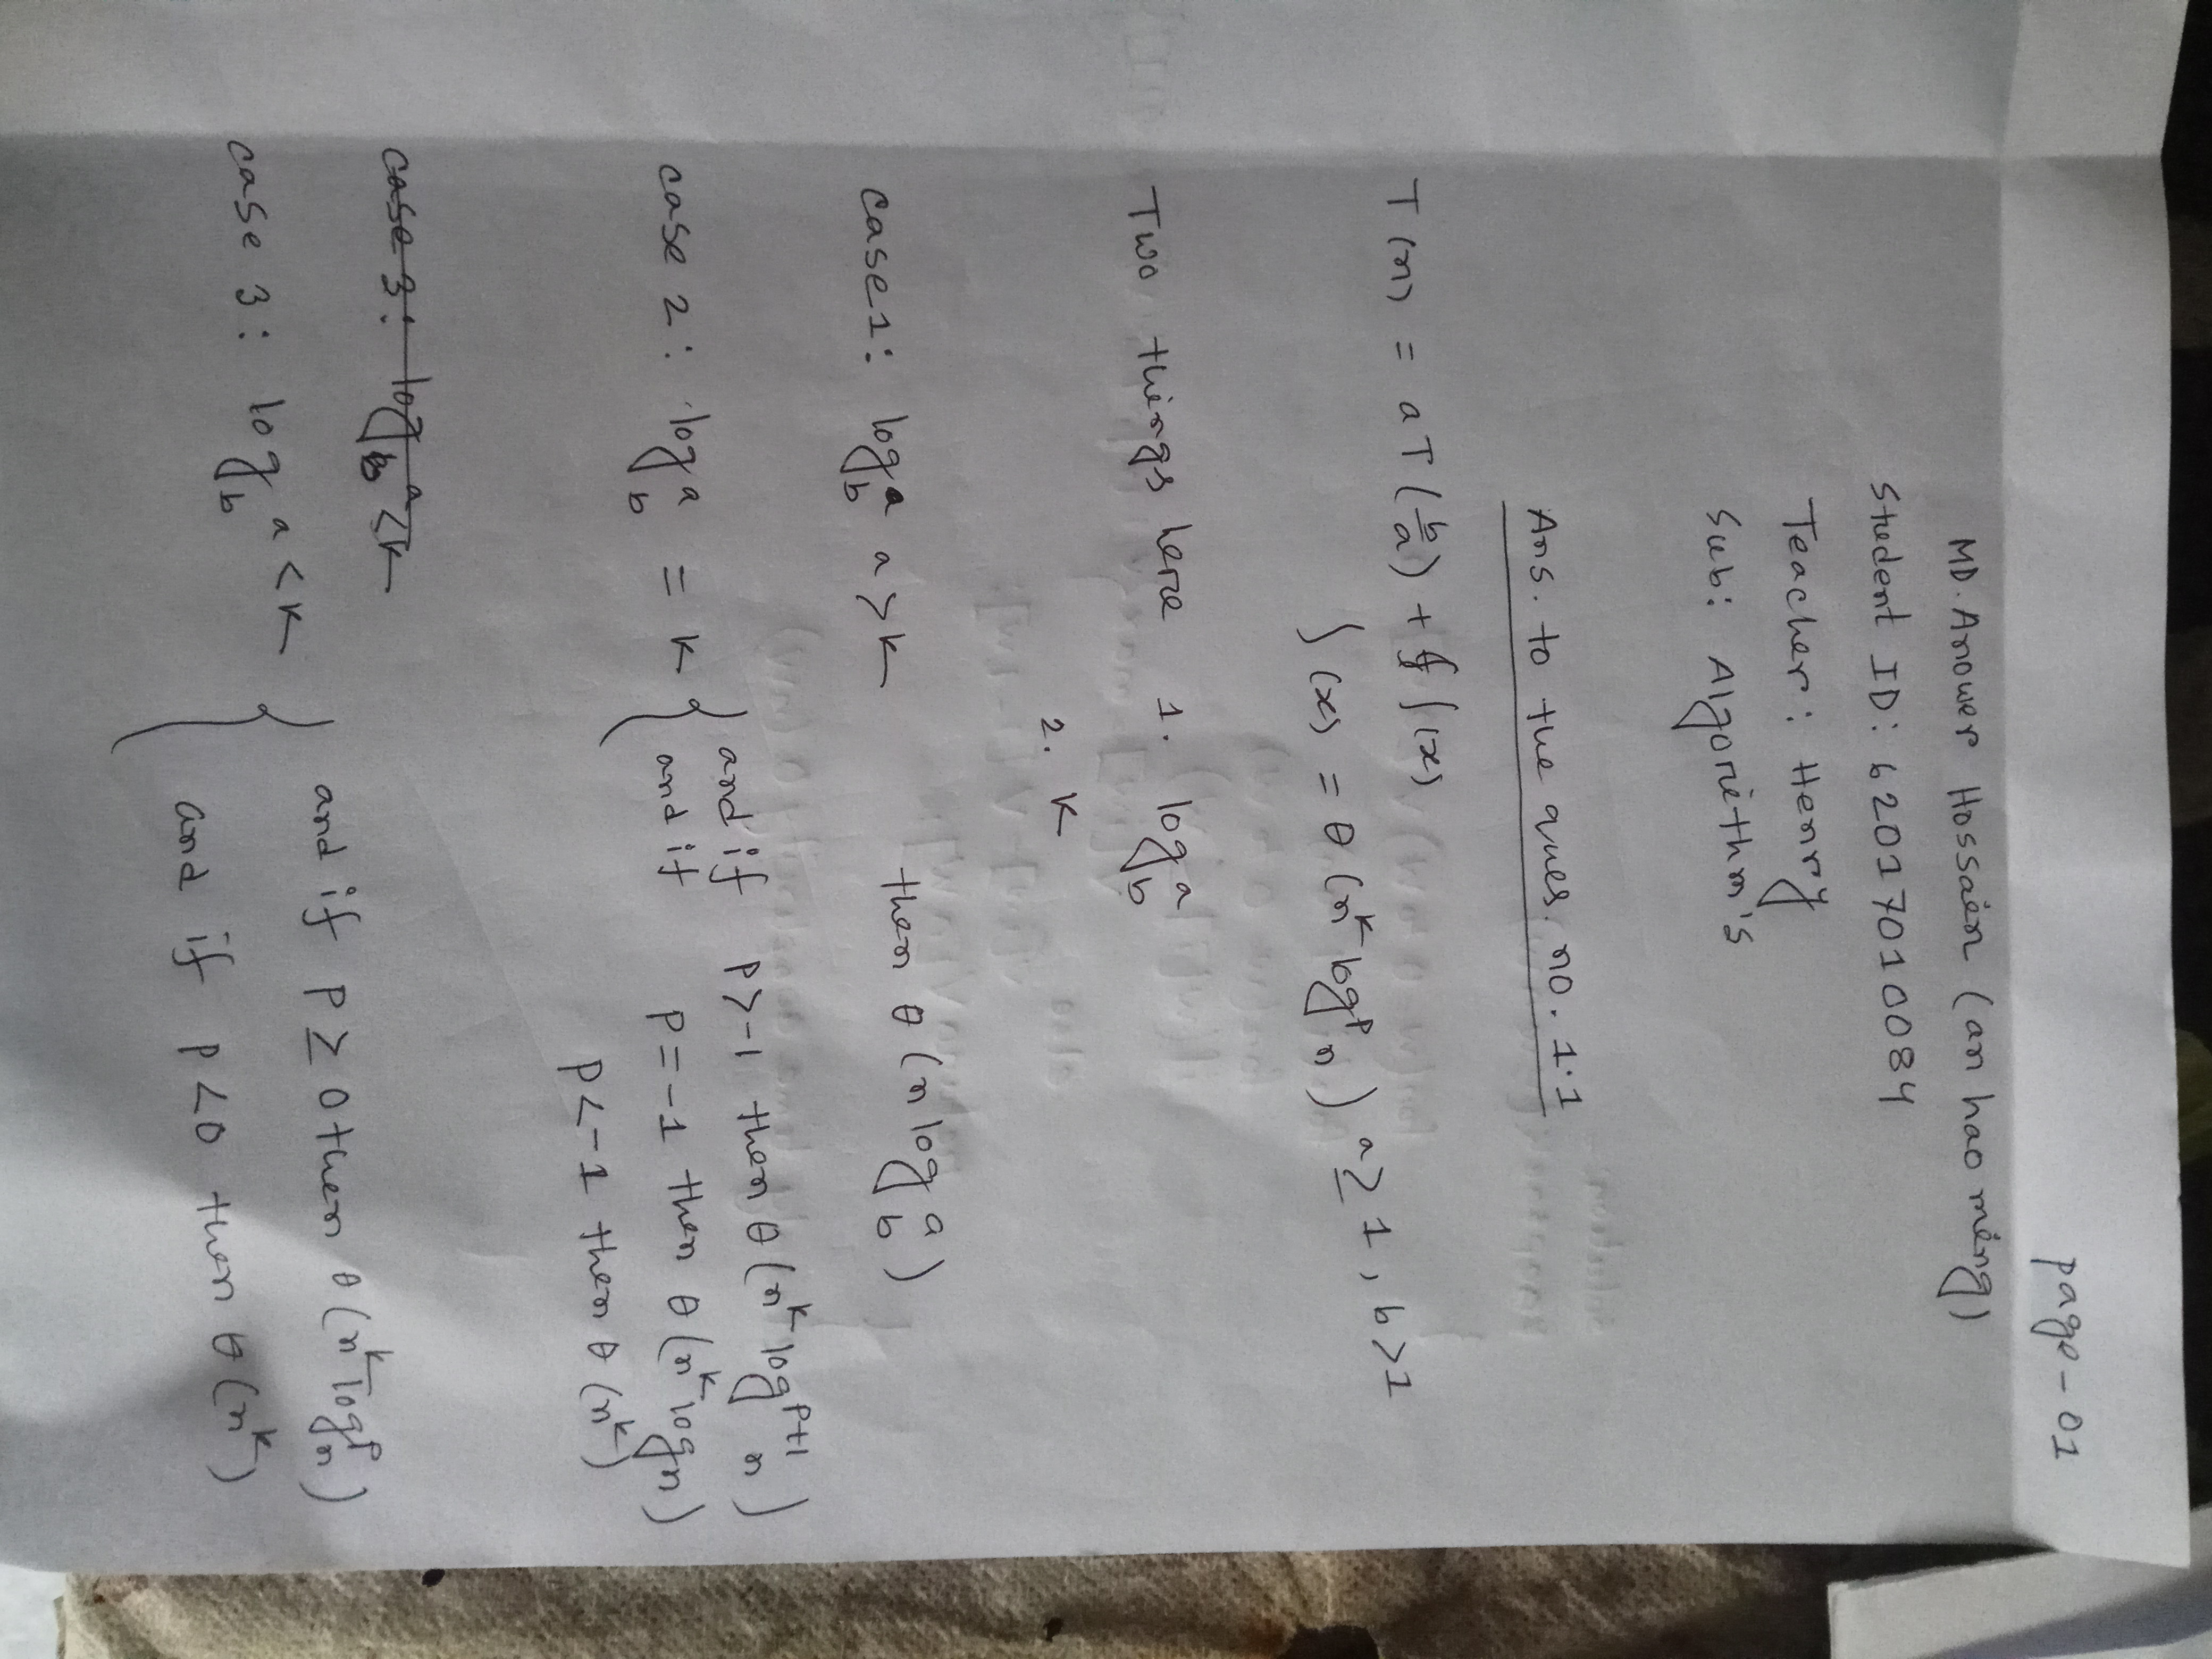 page-01
MD. Anower Hossain (an hao ming)
Student ID: 6201701 0084
Teacher: Henry
Sub: Algorithm's
Ans. to the ques. no. 1.1
T(n) = aT(b/a) + f(x)
f(x) = θ(n^k log^p n) a ≥ 1, b > 1
Two things here 1. log_b^a
2. k
case 1: log_b^a a > k then θ(n log_b^a)
case 2: log_b^a = k } and if p > -1 then θ(n^k log^{p+1} n)
and if p = -1 then θ(n^k log n)
p < -1 then θ(n^k)
case 3: log_b^a < k
case 3: log_b^a < k } and if p ≥ 0 then θ(n^k log^p n)
and if p < 0 then θ(n^k)